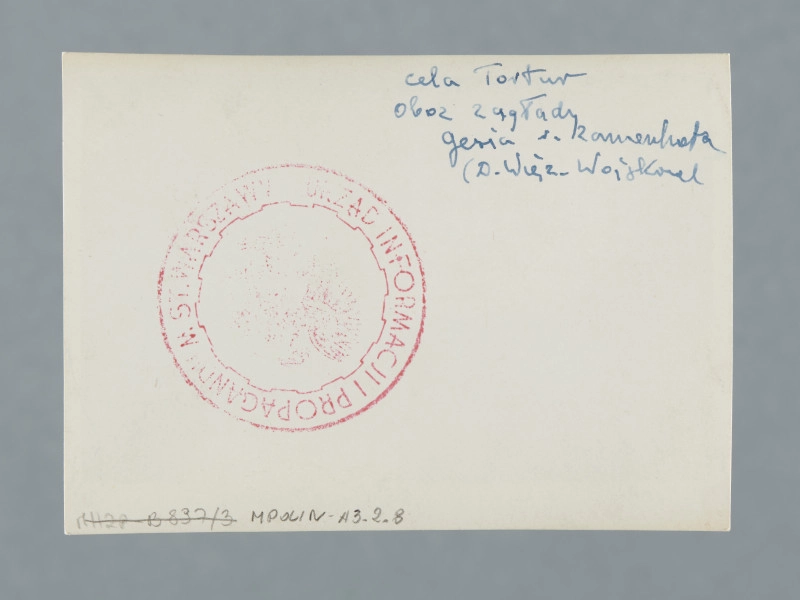 cela Tortur
Oboz zagłady
Gęsia r. Zamenhofa
(D. Więz. Wojskowe
URZĄD INFORMACJI I PROPAGANDY M. ST. WARSZAWY
MŻIH B 837/3
MPOLIN-A3.2.8